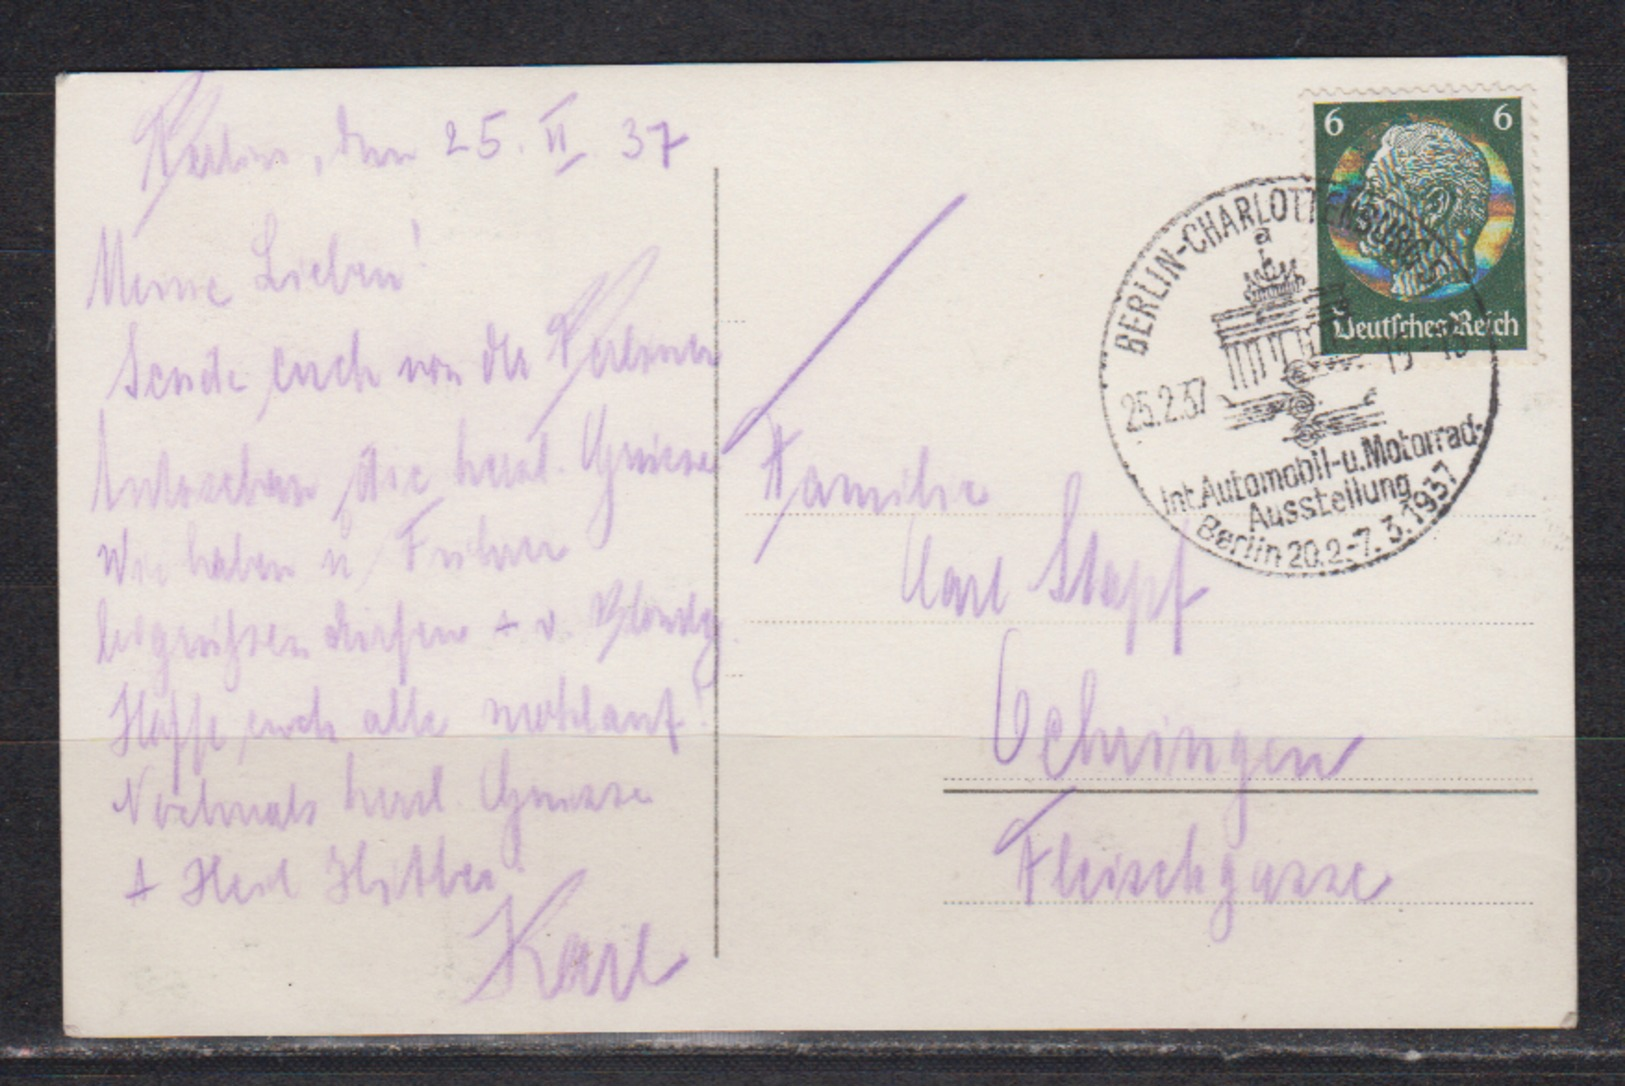 Berlin, den 25. II. 37
Meine Lieben!
Sende euch von der Berliner
die herzl. Grüsse
Wir haben u. Führer
begrüßen dürfen + v.
Hoffe euch alle wohlauf!
Nochmals herzl. Grüsse
+ Heil Hitler!
Karl
6 6
Deutsches Reich
BERLIN-CHARLOTTENBURG 5
a
25.2.37
Int. Automobil-u. Motorrad-
Ausstellung
Berlin 20.2.-7.3.1937
Familie
Karl Stapf
Oehringen
Fleischgasse